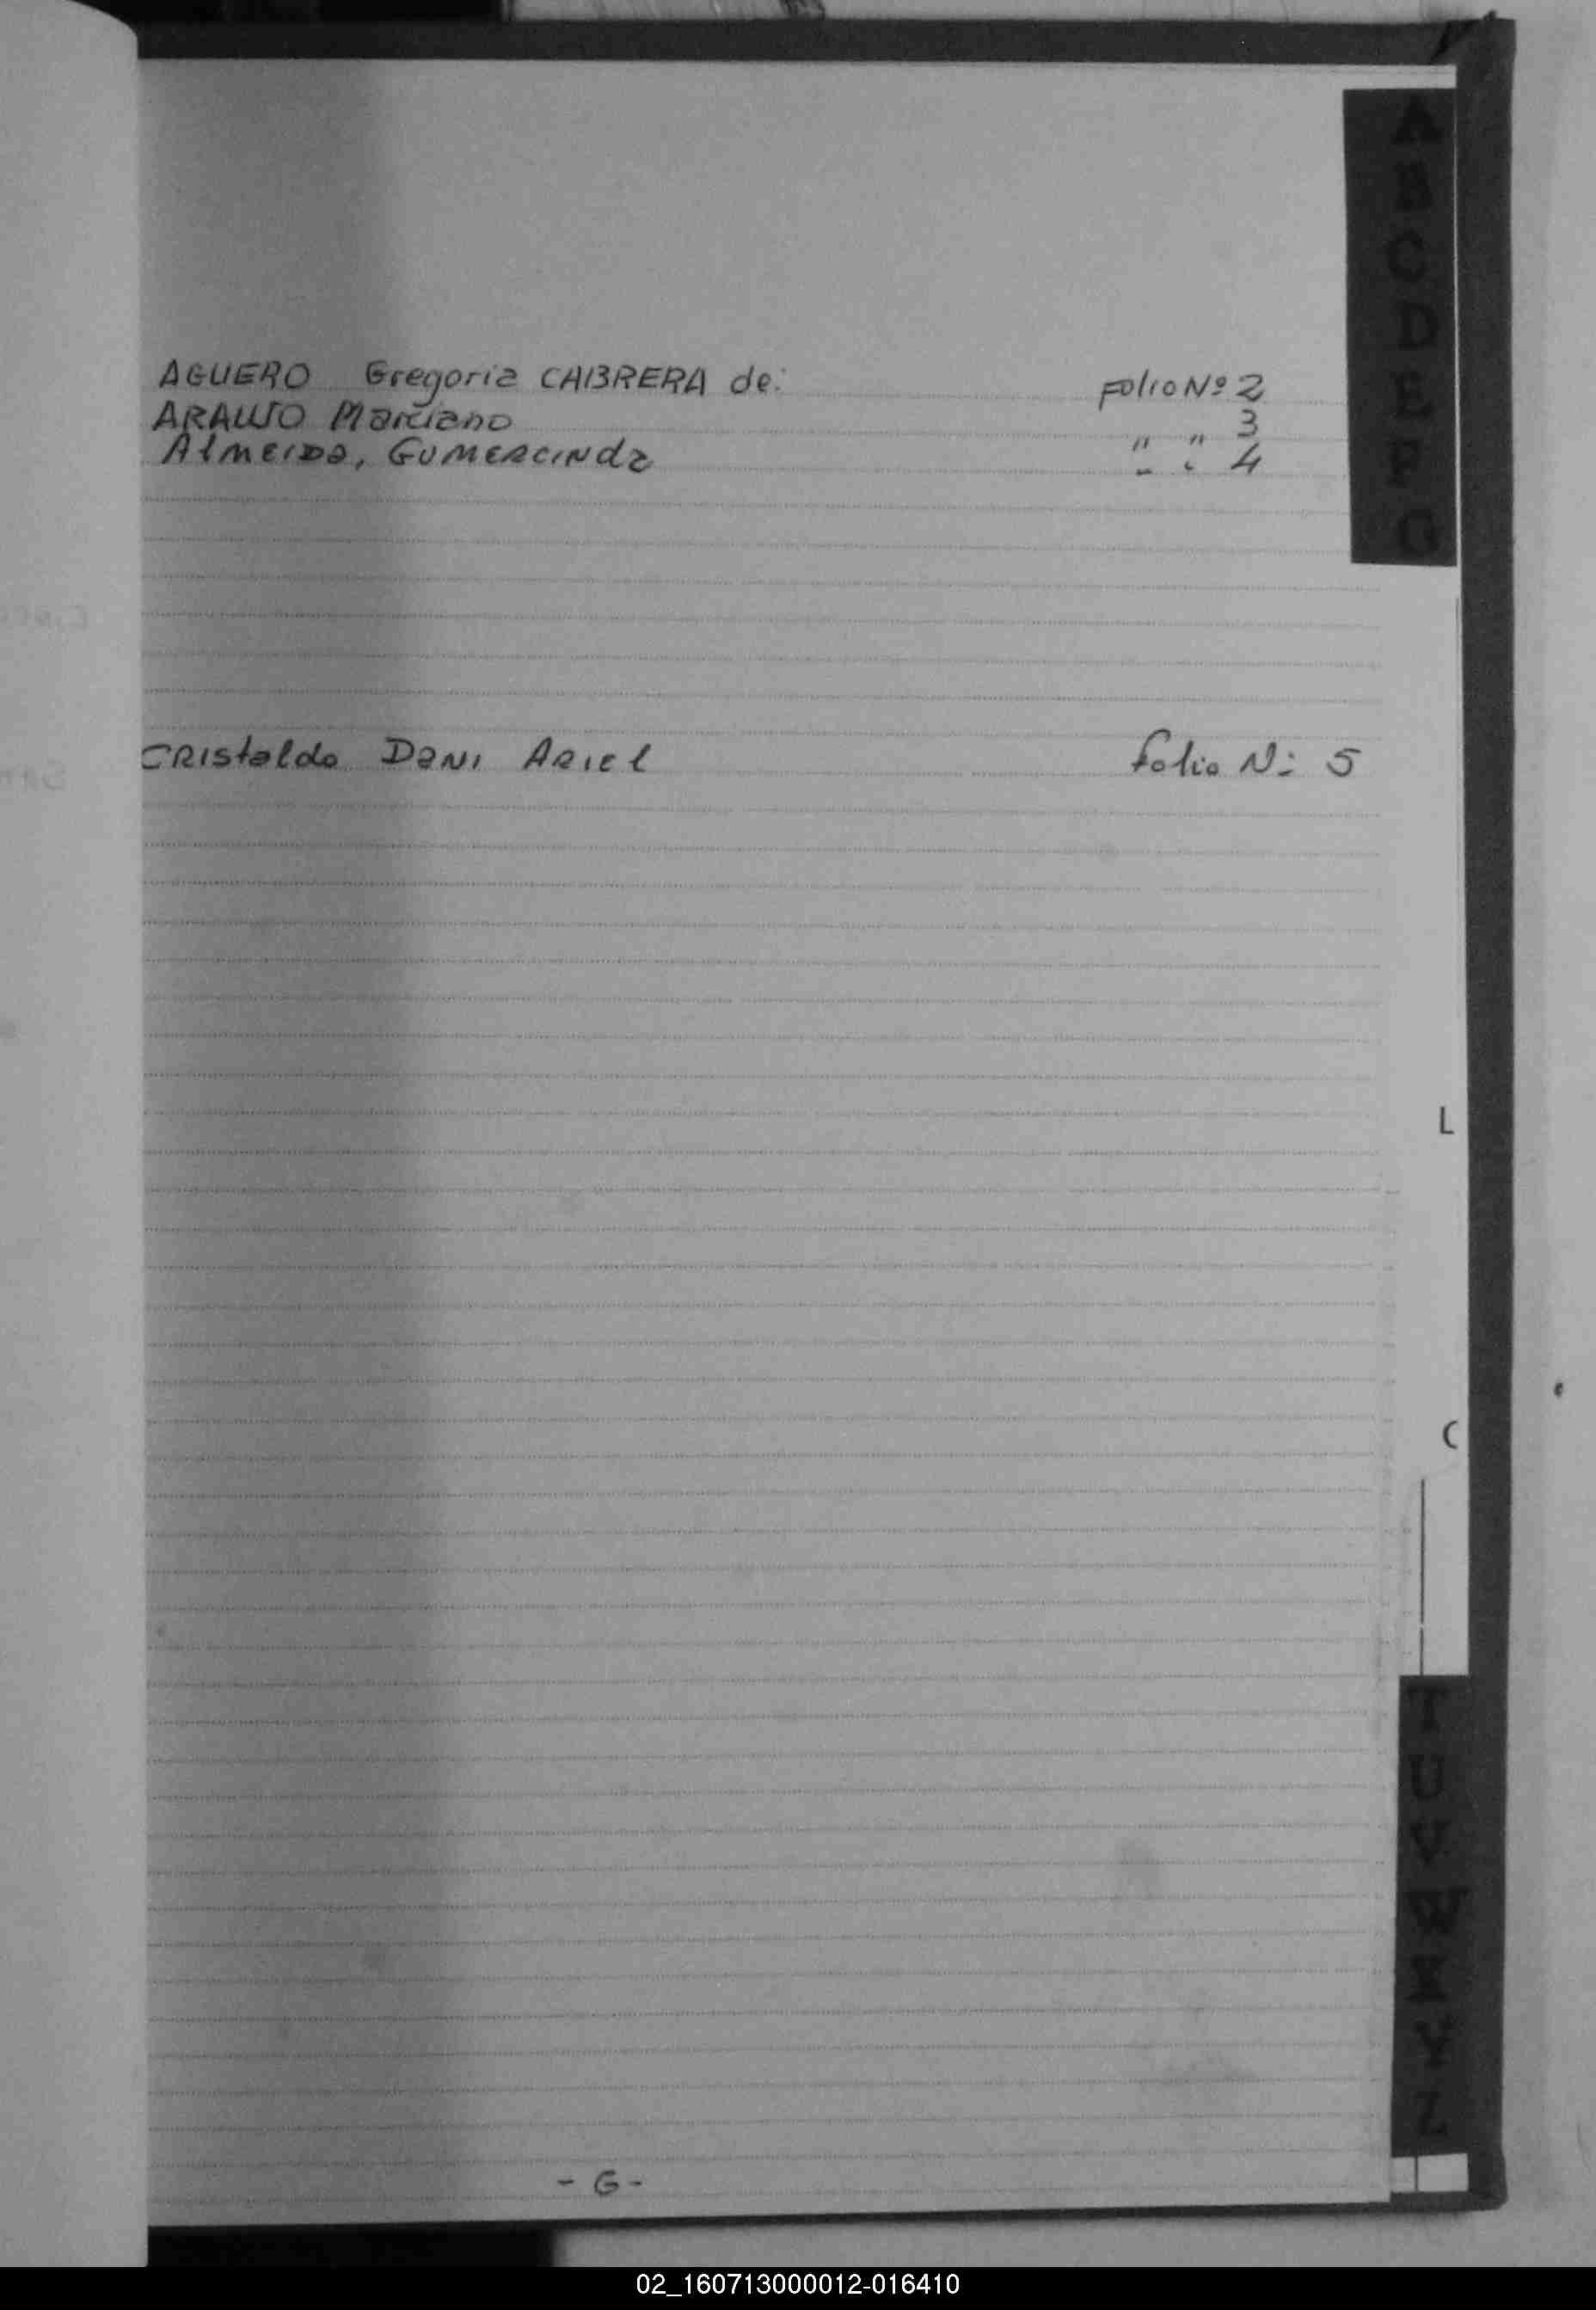 AGUERO Gregoria CABRERA de: Folio Nº 2
ARAUJO Marciano " " 3
Almeida, Gumercinda - " 4
Cristaldo Dani Ariel Folio N: 5
A
B
C
D
E
F
G
L
C
T
U
V
W
X
Y
Z
- 6 -
02_160713000012-016410